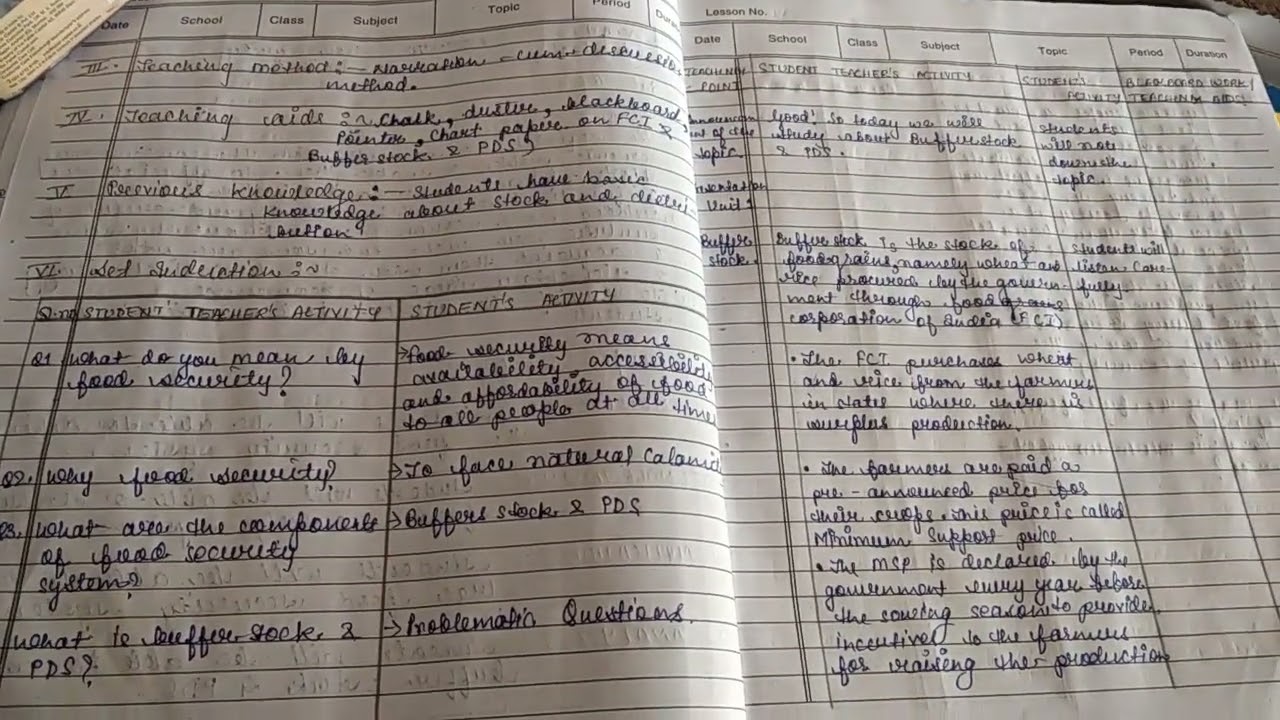 Date School Class Subject Topic Period
III. Teaching method :- Narration - cum - discussion
method.
IV. Teaching aids :~ Chalk, duster, blackboard,
Pointer, Chart papers on FCI &
Buffer stock & PDS
V Previous knowledge :- Students have basic
knowledge about stock and distri-
bution
VI. Set Induction :~
Q.no STUDENT TEACHER'S ACTIVITY STUDENT'S ACTIVITY
Q1 What do you mean by
food security?
→ Food security means
availability accessibility
and affordability of food
to all people at all time
Q2. Why food security?
→ To face natural Calami
Q3. What are the components
of food security
system?
→ Buffers stock & PDS
What is buffer stock &
PDS?
→ Problematic Questions.
Lesson No.
Date School Class Subject Topic Period Duration
TEACHING
POINT
STUDENT TEACHER'S ACTIVITY
STUDENT'S
ACTIVITY
BLACKBOARD WORK/
TEACHING AIDS
nt of the
topic
Good! So today we will
study about Buffer stock
& PDS.
Students
will note
down the
topic.
Unit
Buffer
stock.
Buffer stock is the stock of
foodgrains, namely wheat and
rice procured by the govern-
ment through food
corporation of India (FCI)
Students will
listen care-
fully.
• The FCI purchases wheat
and rice from the farmers
in states where there is
surplus production.
• The farmers are paid a
pre-announced price for
their crops. This price is called
Minimum Support price.
• The MSP is declared by the
government every year before
the sowing season to provide
incentives to the farmers
for raising the production